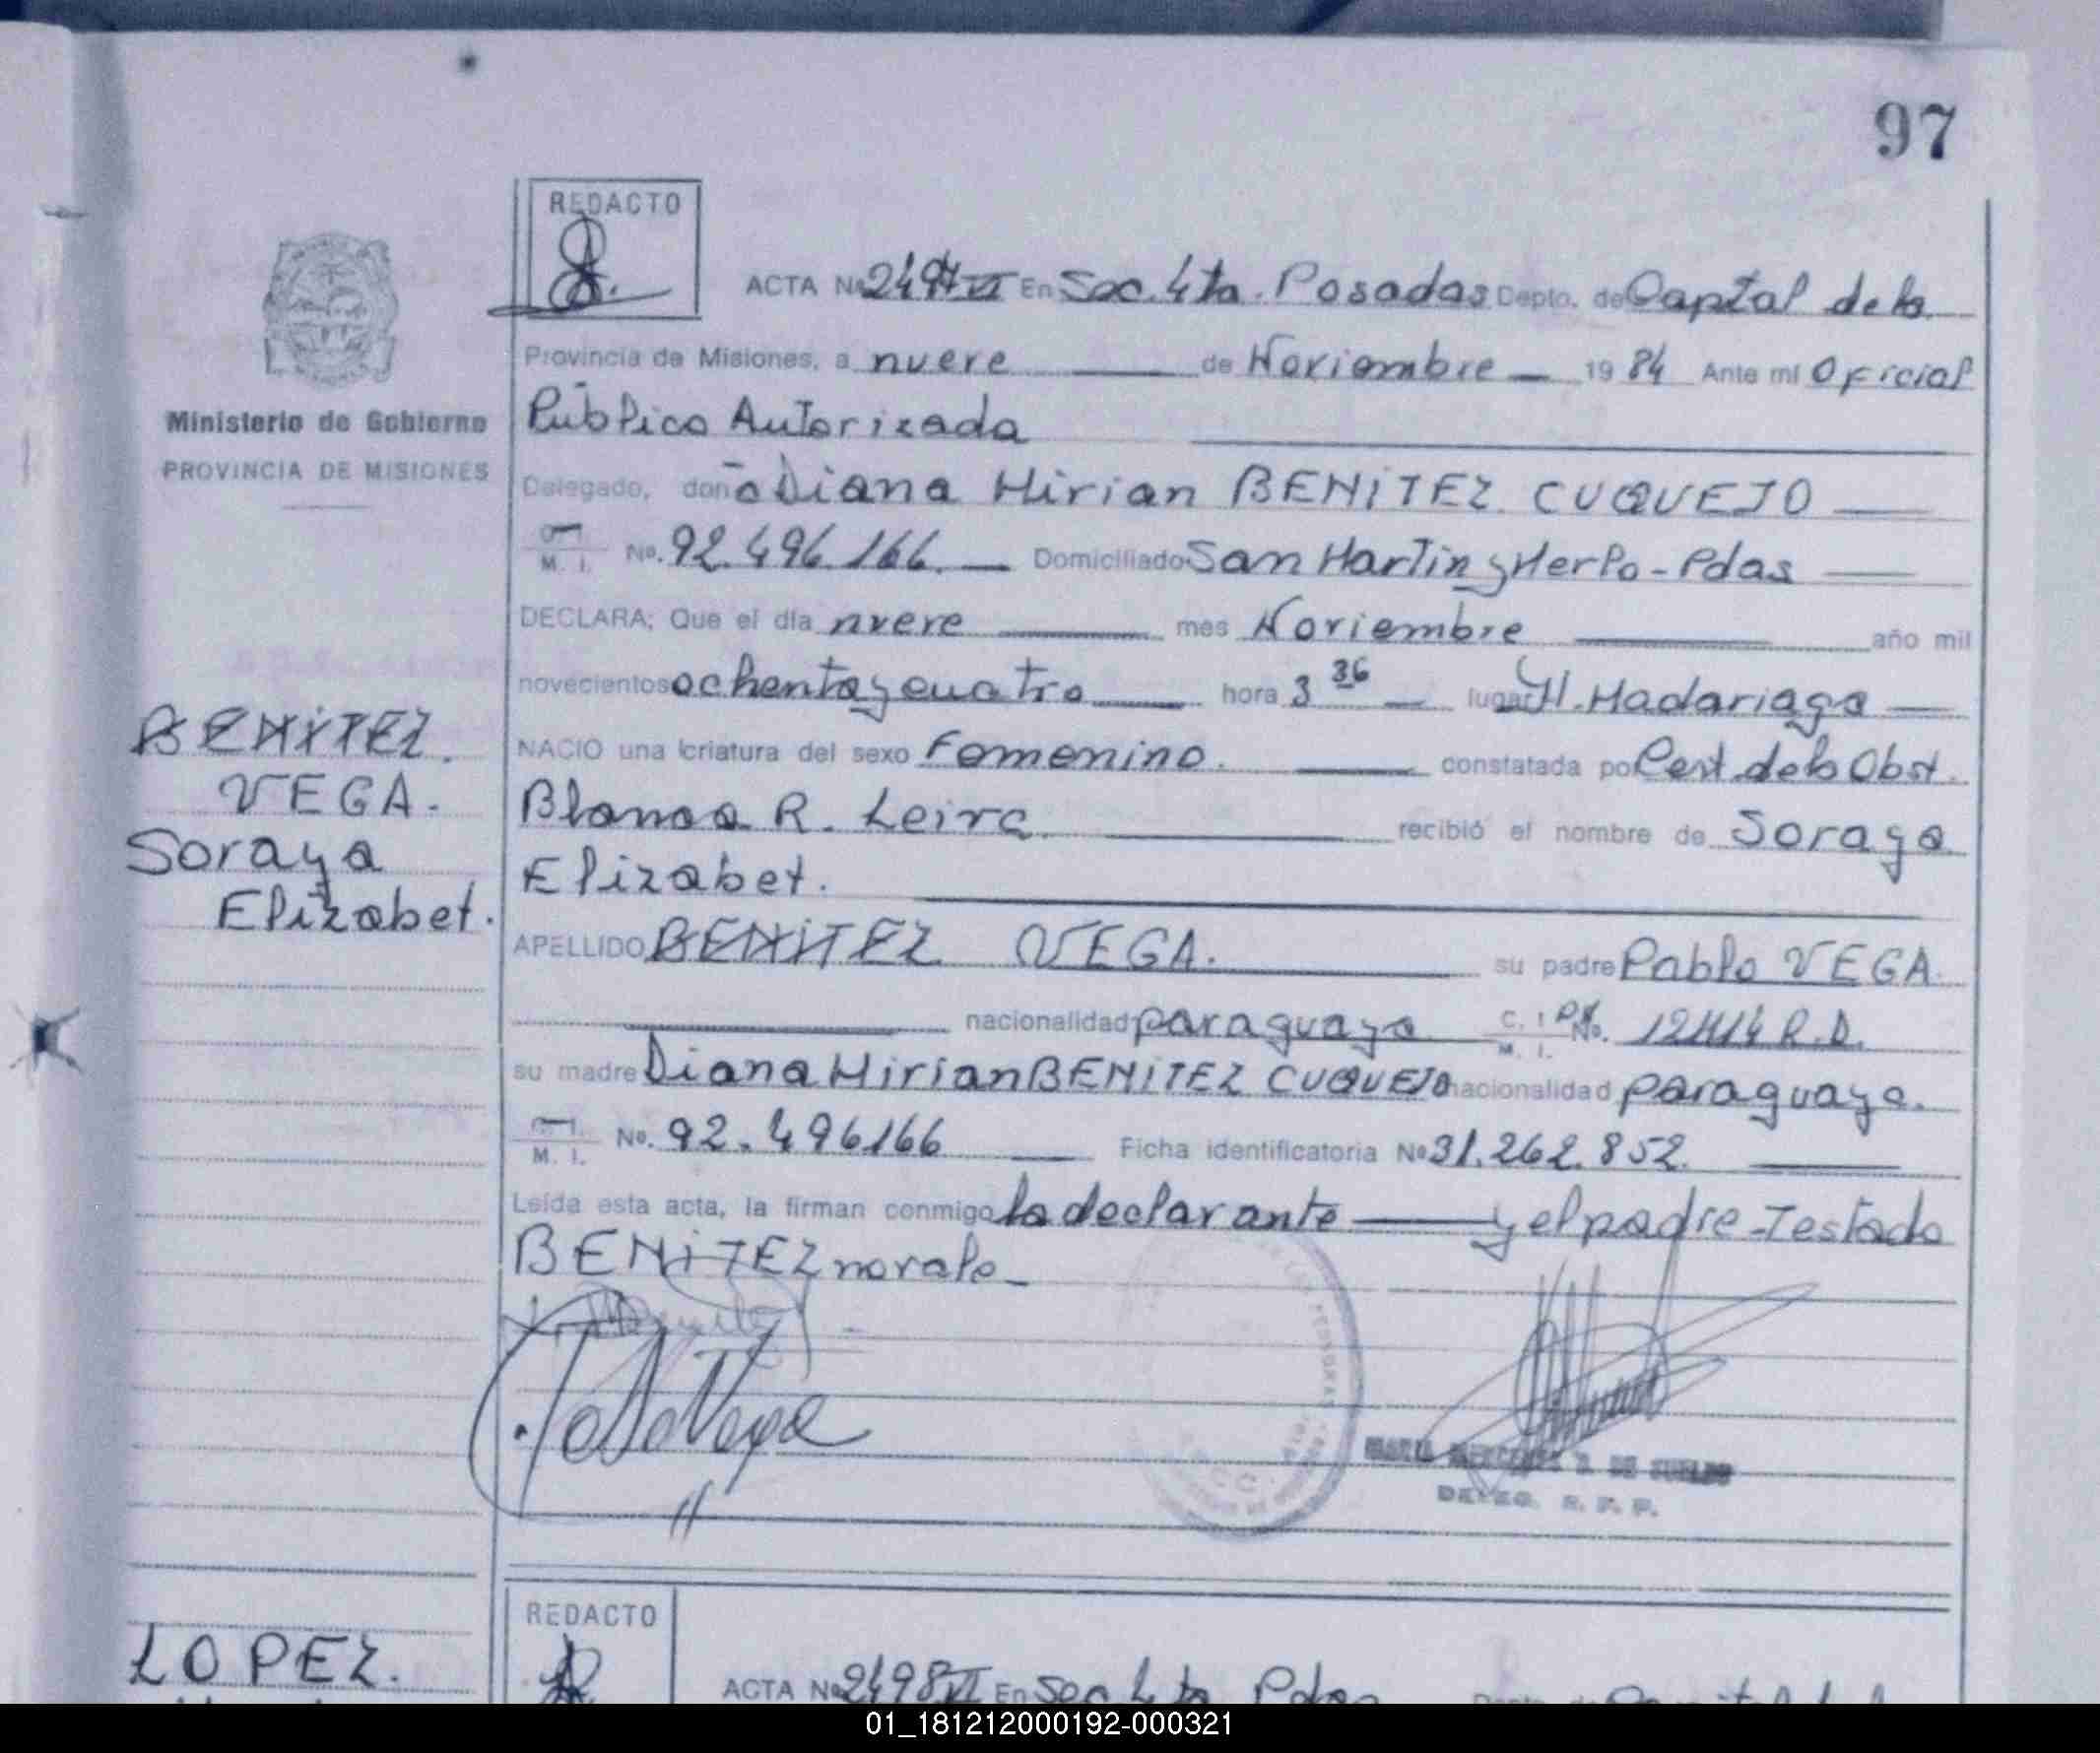 97
REDACTO
ACTA No 2497 VI En Sec. 4ta. Posadas Depto. de Capital de la
Provincia de Misiones, a nueve de Noviembre 19 84 Ante mí Oficial
Público Autorizada
Delegado, doña Diana Mirian BENITEZ CUQUEJO
M. I. No. 92.496.166. Domiciliado San Martin y Merlo - Pdas
DECLARA; Que el día nueve mes Noviembre año mil
novecientos ochenta y cuatro hora 3 36 lugar H. Madariaga
NACIO una criatura del sexo Femenino. constatada por Cert. de la Obst.
Blanca R. Leiva recibió el nombre de Soraya
Elizabet.
APELLIDO BENITEZ VEGA. su padre Pablo VEGA
nacionalidad paraguaya C. I. M. I. No. R.D.
su madre Diana Mirian BENITEZ CUQUEJO nacionalidad paraguaya.
M. I. No. 92.496166 Ficha identificatoria No 31.262.852.
Leída esta acta, la firman conmigo la declarante y el padre - Testado
BENITEZ no vale
Ministerio de Gobierno
PROVINCIA DE MISIONES
BENITEZ.
VEGA.
Soraya
Elizabet.
DE SUELDO
LOPEZ.
REDACTO
ACTA No 2498 VI En Sec 4ta Pdas
01_181212000192-000321